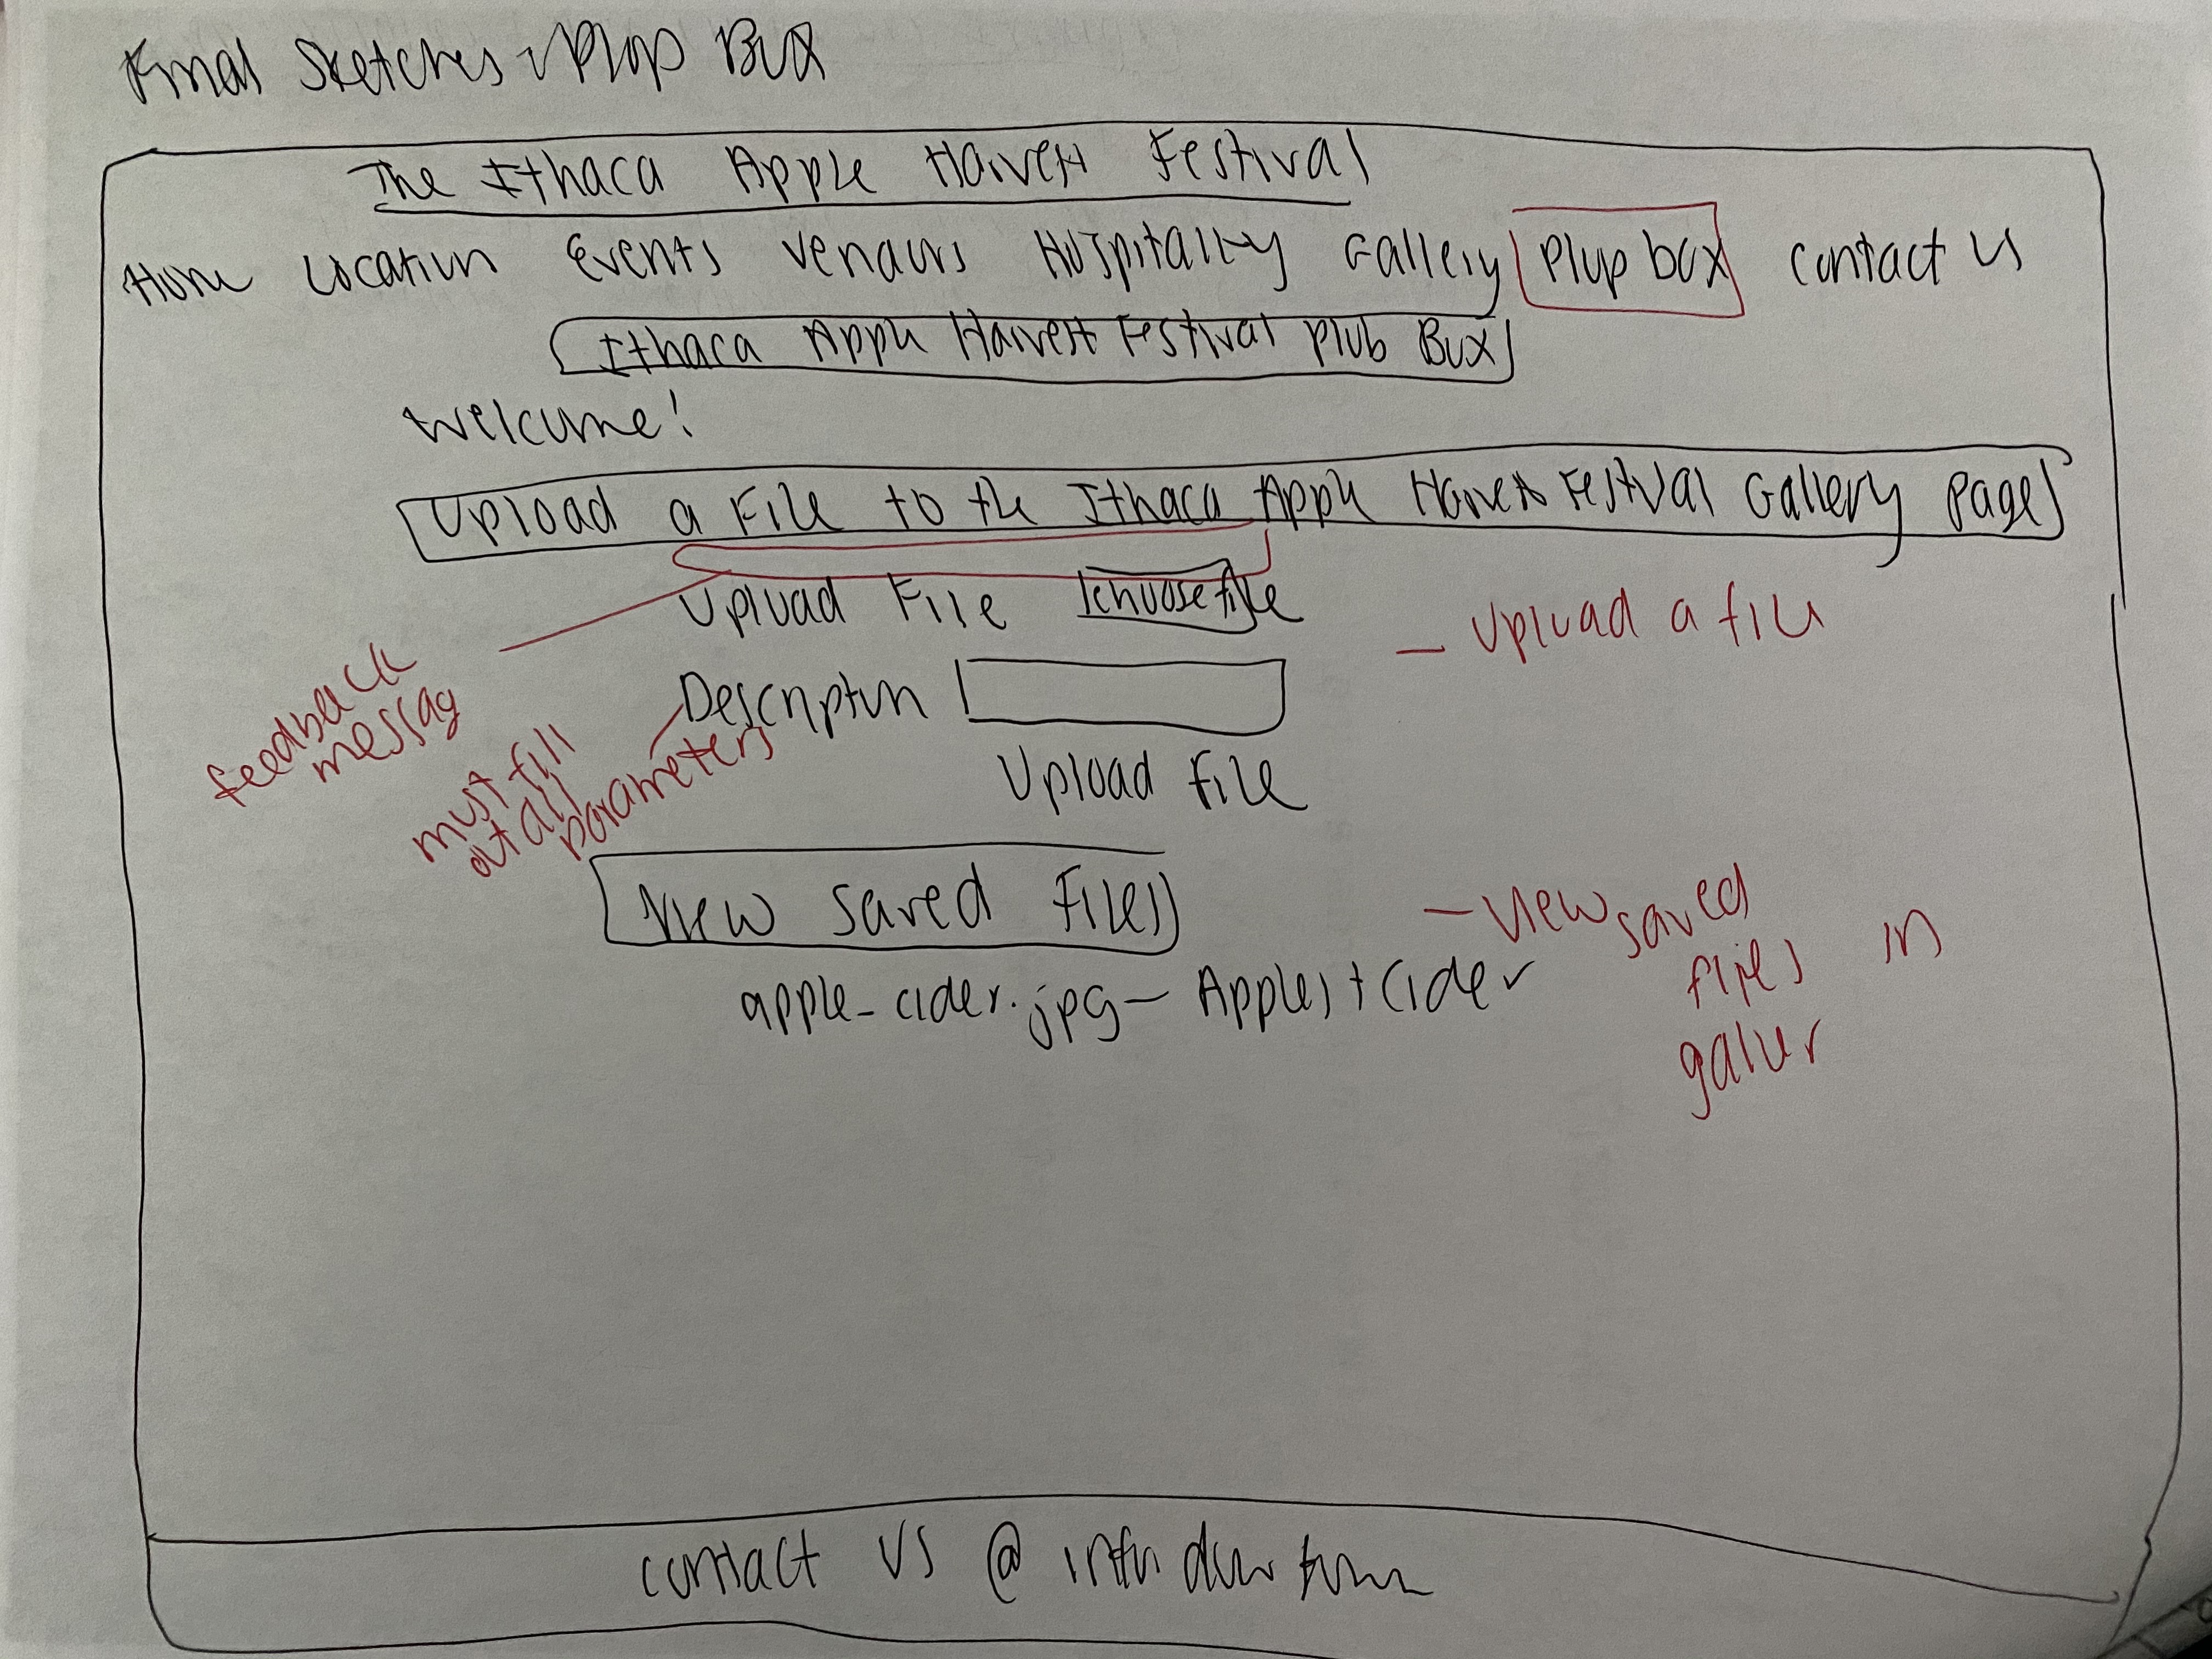 Final Sketches - Plop Box
The Ithaca Apple Harvest Festival
Home Location Events Vendors Hospitality Gallery Plop box Contact Us
Ithaca Apple Harvest Festival Plub Box
Welcome!
Upload a File to the Ithaca Apple Harvest Festival Gallery Page
Upload File choose file
- Upload a file
feedback
message
Description
must fill
out all
parameters
Upload file
View Saved Files
- View saved
files in
apple_cider.jpg - Apples + Cider
contact us @ info downtown